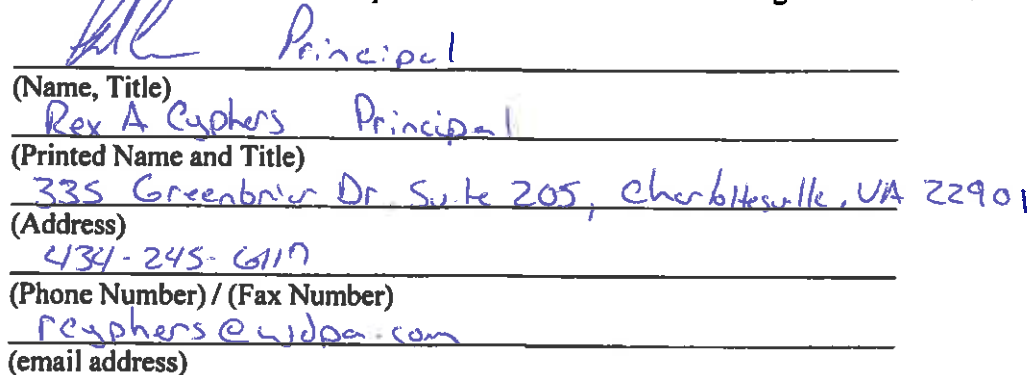 Principal
(Name, Title)
Rex A Cyphers Principal
(Printed Name and Title)
335 Greenbrier Dr Suite 205, Charlottesville, VA 22901
(Address)
434-245-6117
(Phone Number) / (Fax Number)
rcyphers@wdpa.com
(email address)